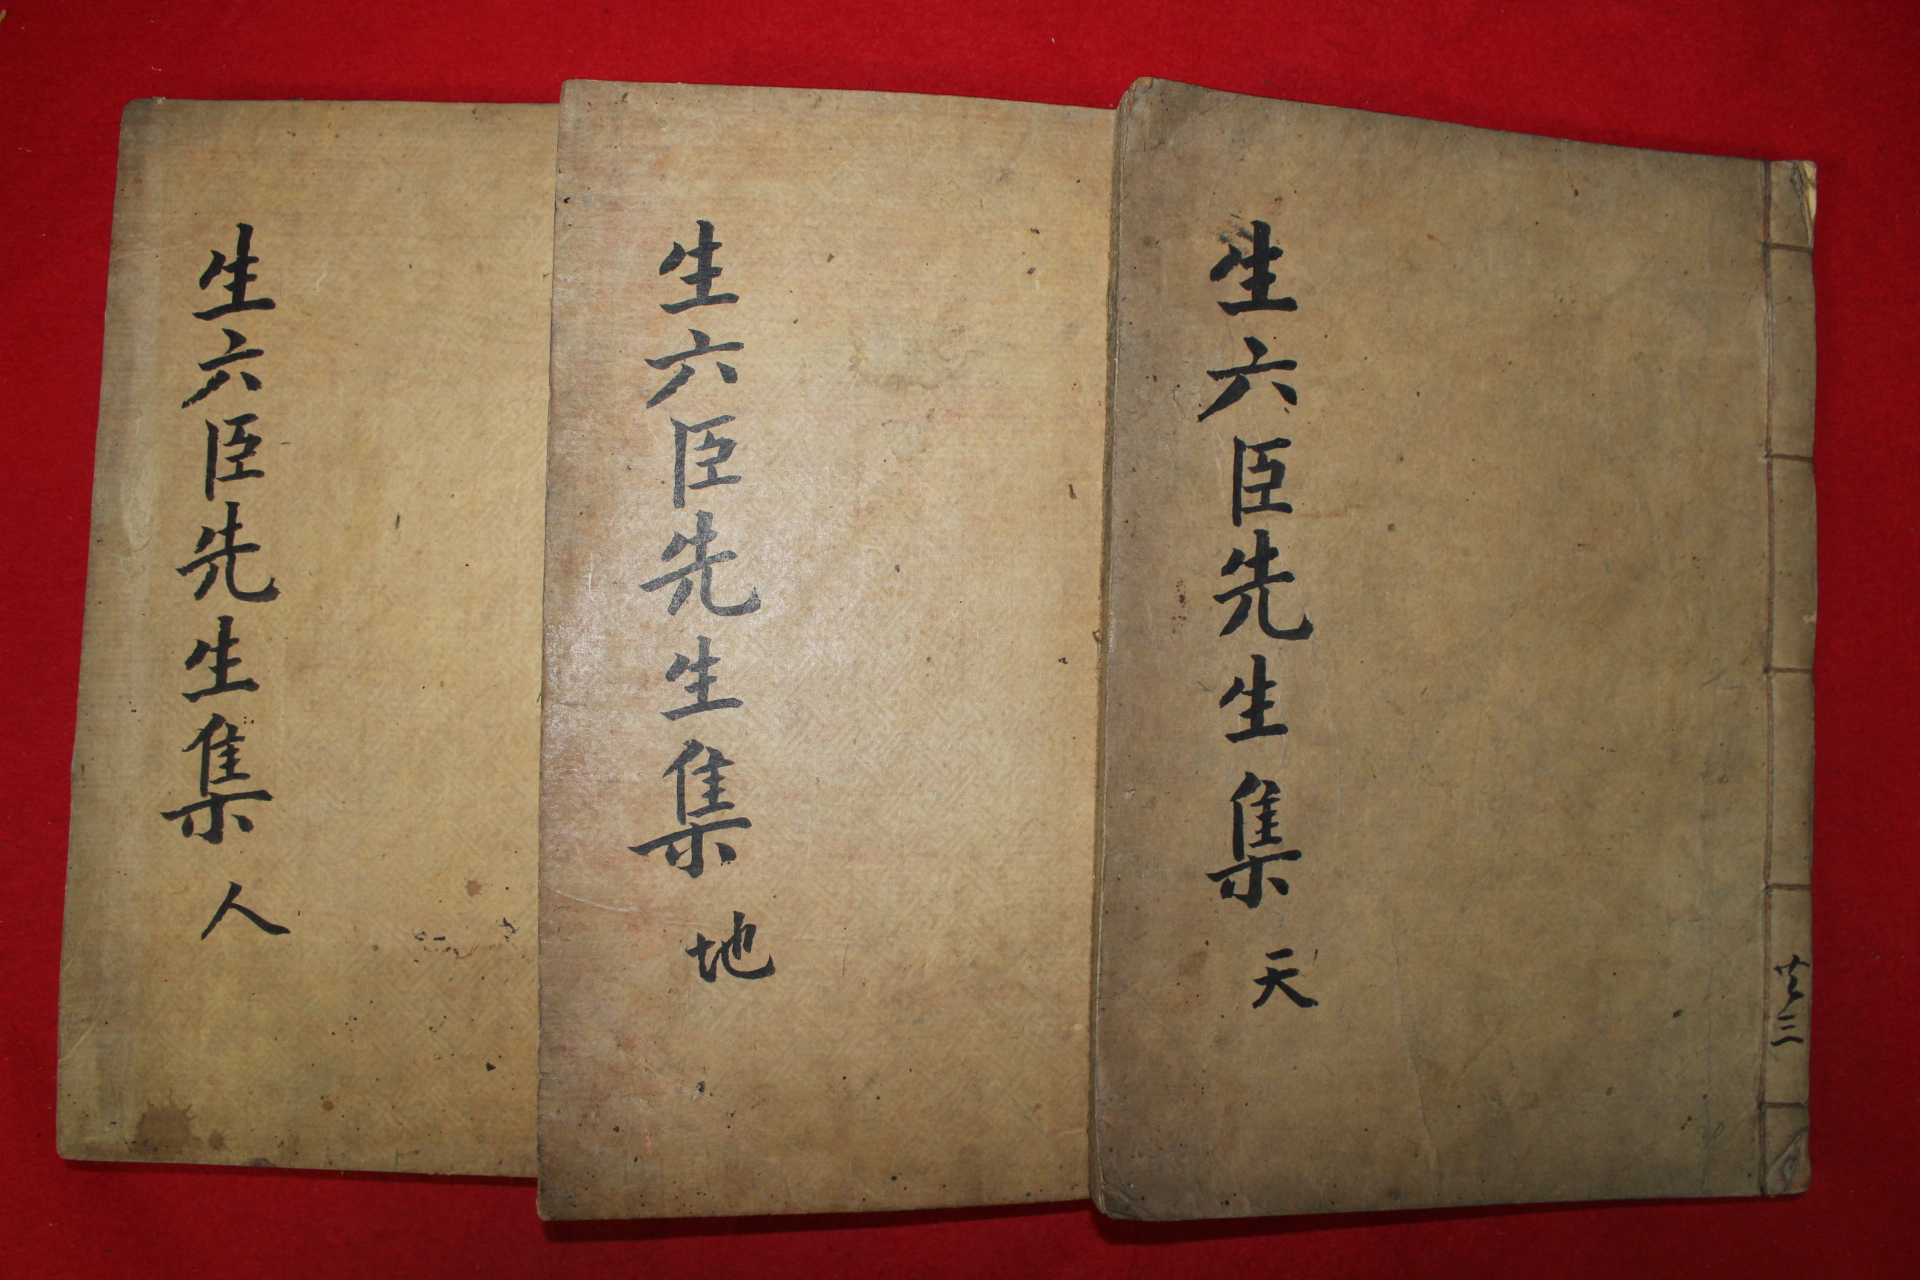 生六臣先生集 天
共三
生六臣先生集 地
生六臣先生集 人